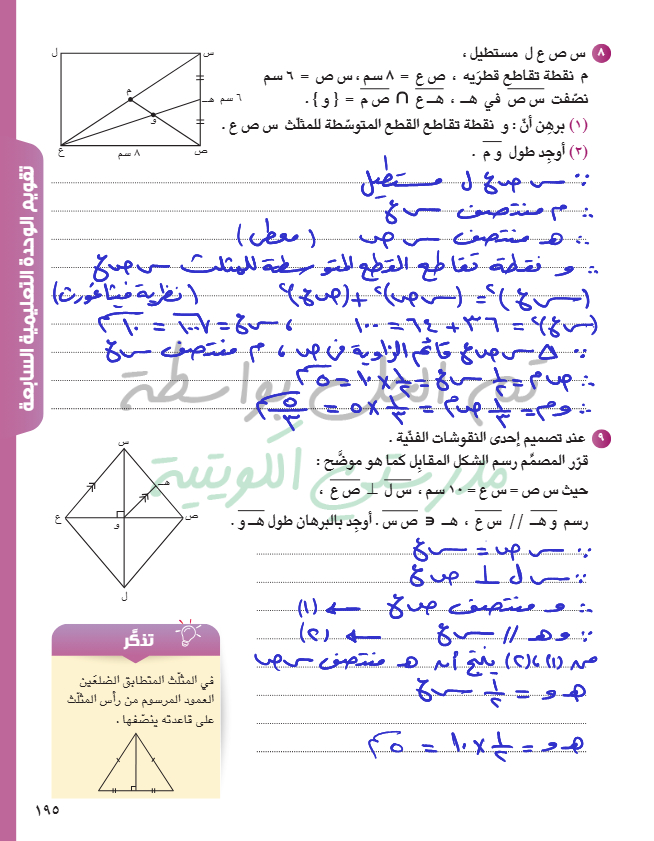 ٨ س ص ع ل مستطيل ،
م نقطة تقاطع قطرَيه ، ص ع = ٨ سم ، س ص = ٦ سم
نصّفت س ص في هـ ، هـ ع ∩ ص م = { و } .
(١) برهن أنّ : و نقطة تقاطع القطع المتوسّطة للمثلّث س ص ع .
(٢) أوجِد طول و م .
ل
س
م
هـ
٦ سم
و
ع
٨ سم
ص
∵ س ص ع ل مستطيل
∴ م منتصف س ع
∵ هـ منتصف س ص (معطى)
∴ و نقطة تقاطع القطع المتوسطة للمثلث س ص ع
(س ع)² = (س ص)² + (ص ع)² (نظرية فيثاغورث)
(س ع)² = ٣٦ + ٦٤ = ١٠٠ ، س ع = √١٠٠ = ١٠ سم
∵ △ س ص ع قائم الزاوية في ص ، م منتصف س ع
∴ ص م = ١/٢ س ع = ١/٢ × ١٠ = ٥ سم
∴ و م = ١/٣ ص م = ١/٣ × ٥ = ٥/٣ سم
تم الحل بواسطة
مدرستي الكويتية
٩ عند تصميم إحدى النقوشات الفنّية .
قرّر المصمِّم رسم الشكل المقابِل كما هو موضَّح :
حيث س ص = س ع = ١٠ سم ، س ل ⊥ ص ع ،
رسم و هـ // س ع ، هـ ∈ ص س . أوجِد بالبرهان طول هـ و .
س
هـ
ع
و
ص
ل
∵ س ص = س ع
∵ س ل ⊥ ص ع
∴ و منتصف ص ع ← (١)
∵ و هـ // س ع ← (٢)
من (١) ، (٢) ينتج أن هـ منتصف س ص
هـ و = ١/٢ س ع
هـ و = ١/٢ × ١٠ = ٥ سم
تذكَّر
في المثلّث المتطابق الضلعَين
العمود المرسوم من رأس المثلّث
على قاعدته ينصّفها .
تقويم الوحدة التعليمية السابعة
١٩٥